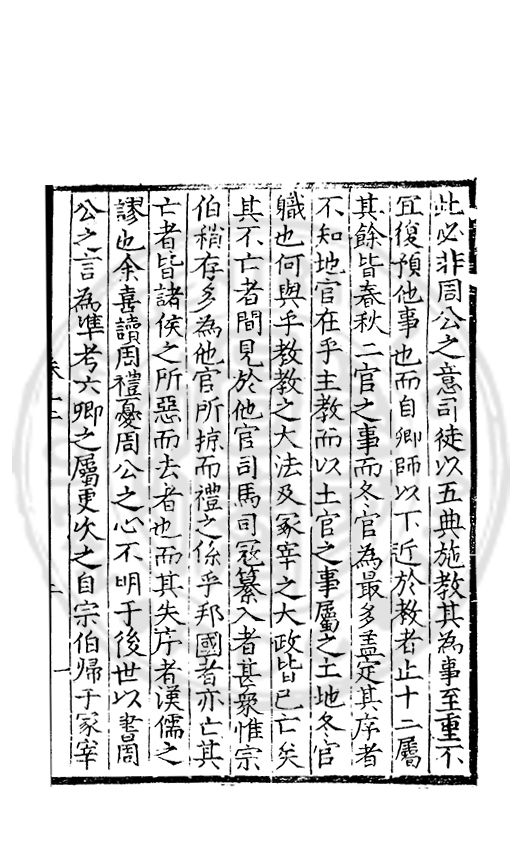 此必非周公之意司徒以五典施教其為事至重不
宜復預他事也而自鄉師以下近於教者止十二屬
其餘皆春秋二官之事而冬官為最多盖定其序者
不知地官在乎主教而以土官之事屬之土地冬官
職也何與乎教教之大法及冢宰之大政皆已亡矣
其不亡者間見於他官司馬司冦纂入者甚衆惟宗
伯稍存多為他官所掠而禮之係乎邦國者亦亡其
亡者皆諸侯之所惡而去者也而其失序者漢儒之
謬也余喜讀周禮憂周公之心不明于後世以書周
公之言為準考六卿之屬更次之自宗伯帰于冢宰